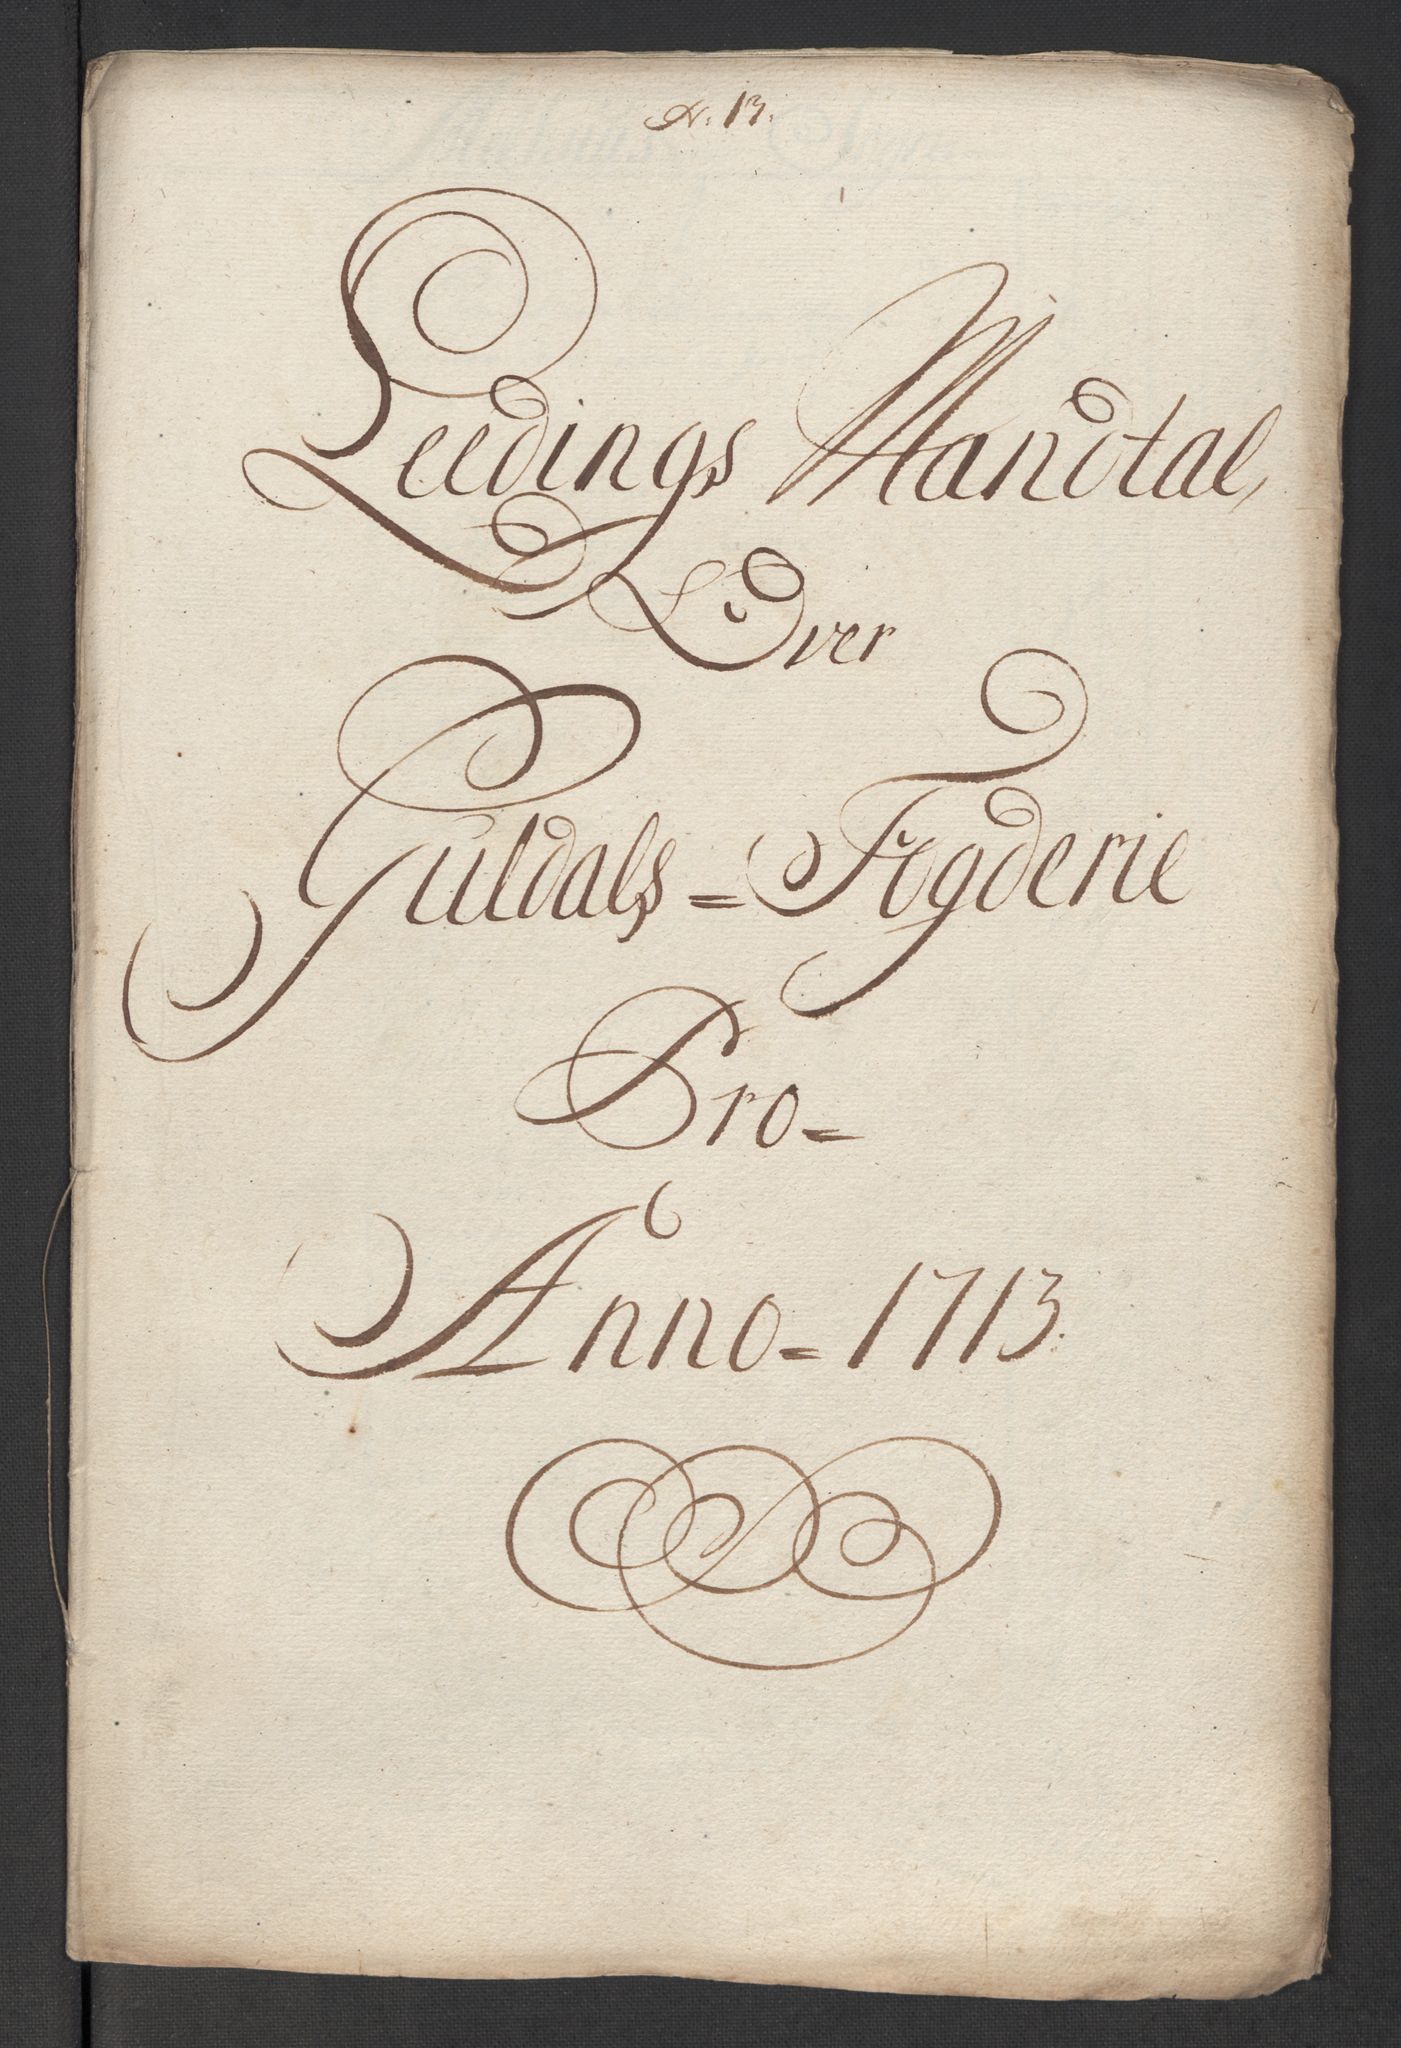 N. 13.
Leedings Mandtal,
Over
Guldals = Fogderie
Pro =
Anno = 1713.